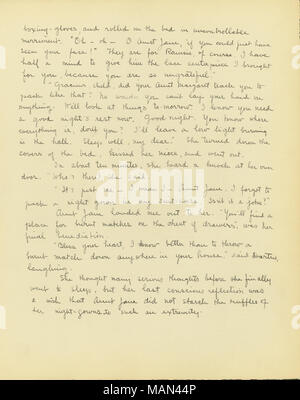 boxing-gloves and rolled on the bed in uncontrollable
merriment. "Oh - oh - O Aunt Jane, if you could just have
seen your face!" They are for Rannie of course. I have
half a mind to give him the lace centerpiece I brought
for you because you are so ungrateful."
"Gracious child, did your Aunt Margaret teach you to
pack like that?
can't lay your hand on
anything. We'll look at things to-morrow. I know you need
a good night's rest now. Good night. You know where
everything is, don't you? I'll leave a low light burning
in the hall. Sleep well, my dear." She turned down the
covers of the bed, kissed her niece, and went out.
In about ten minutes she heard a knock at her own
door. "Who's there?" she said.
"It's just me - I mean I, Aunt Jane. I forgot to
pack a night gown in my suit case. Isn't it a joke?"
Aunt Jane handed one out to her. "You'll find a
place for burnt matches on the chest of drawers," was her
final benediction.
"Bless your heart, I know better than to throw a
burnt match down anywhere in your house," said
laughing.
She thought many serious thoughts before she finally
went to sleep, but her last conscious reflection was
a wish that Aunt Jane did not starch the ruffles of
her night-gowns to such an extremity.
alamy
Image ID: MAN44P
www.alamy.com